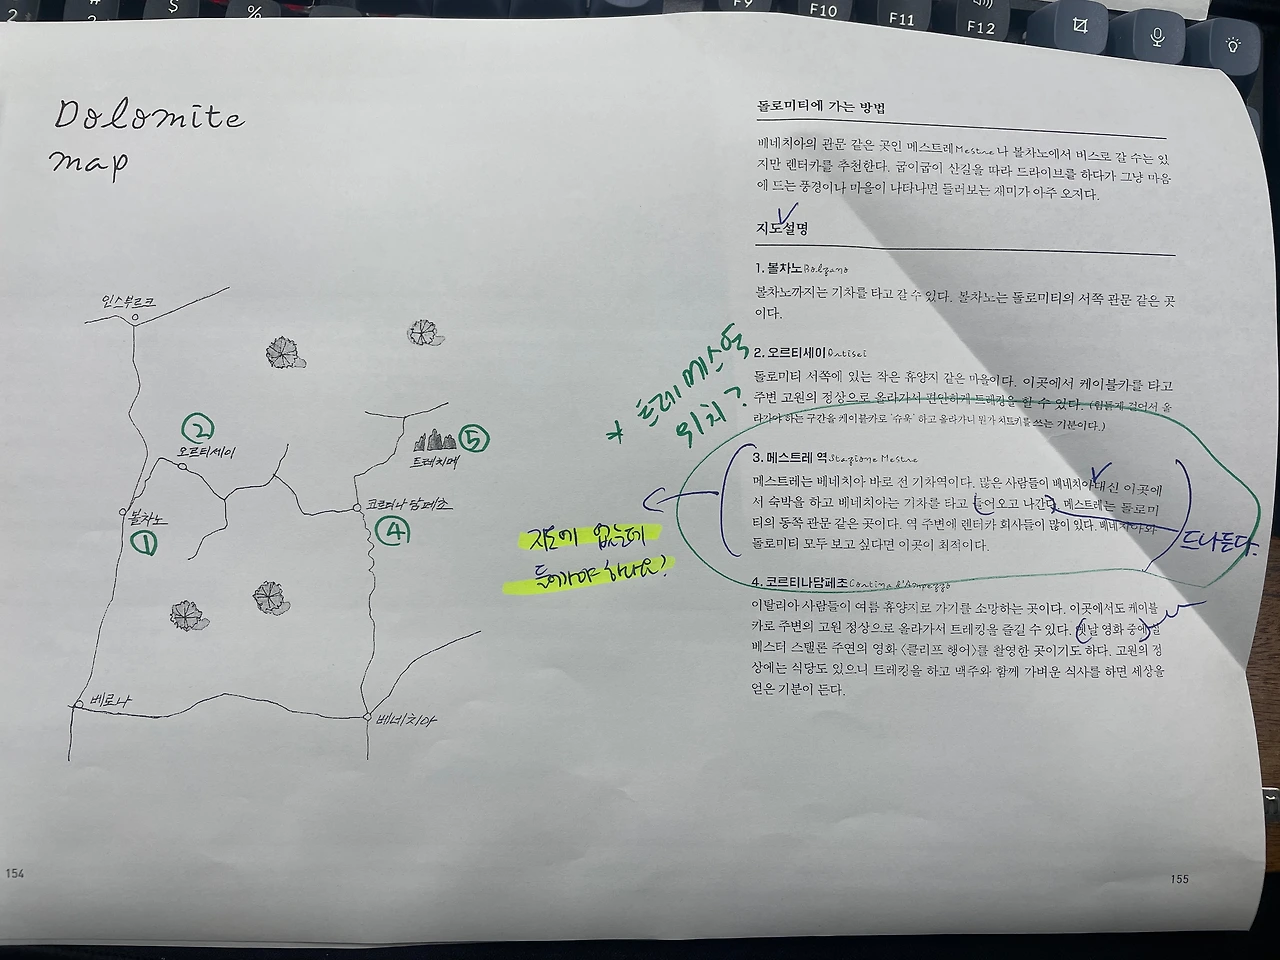 F9
F10
F11
F12
Dolomite
map
인스부르크
②
오르티세이
⑤
트레치메
볼차노
①
코르티나 담페초
④
베로나
베네치아
154
돌로미티에 가는 방법
베네치아의 관문 같은 곳인 메스트레Mestre나 볼차노에서 버스로 갈 수는 있
지만 렌터카를 추천한다. 굽이굽이 산길을 따라 드라이브를 하다가 그냥 마음
에 드는 풍경이나 마을이 나타나면 들러보는 재미가 아주 오지다.
지도설명
1. 볼차노Bolzano
볼차노까지는 기차를 타고 갈 수 있다. 볼차노는 돌로미티의 서쪽 관문 같은 곳
이다.
2. 오르티세이Ortisei
돌로미티 서쪽에 있는 작은 휴양지 같은 마을이다. 이곳에서 케이블카를 타고
주변 고원의 정상으로 올라가서 편안하게 트래킹을 할 수 있다. (힘들게 걸어서 올
라가야 하는 구간을 케이블카로 '슈욱' 하고 올라가니 뭔가 치트키를 쓰는 기분이다.)
* 트레 메스역
위치?
3. 메스트레 역Stazione Mestre
메스트레는 베네치아 바로 전 기차역이다. 많은 사람들이 베네치아대신 이곳에
서 숙박을 하고 베네치아는 기차를 타고 들어오고 나간다. 메스트레는 돌로미
티의 동쪽 관문 같은 곳이다. 역 주변에 렌터카 회사들이 많이 있다. 베네치아와
돌로미티 모두 보고 싶다면 이곳이 최적이다.
드나든다.
지도에 없는데
들어가야 하나요?
4. 코르티나담페초Cortina d'Ampezzo
이탈리아 사람들이 여름 휴양지로 가기를 소망하는 곳이다. 이곳에서도 케이블
카로 주변의 고원 정상으로 올라가서 트레킹을 즐길 수 있다. 옛날 영화 중에 실
베스터 스탤론 주연의 영화 〈클리프 행어〉를 촬영한 곳이기도 하다. 고원의 정
상에는 식당도 있으니 트레킹을 하고 맥주와 함께 가벼운 식사를 하면 세상을
얻은 기분이 든다.
155